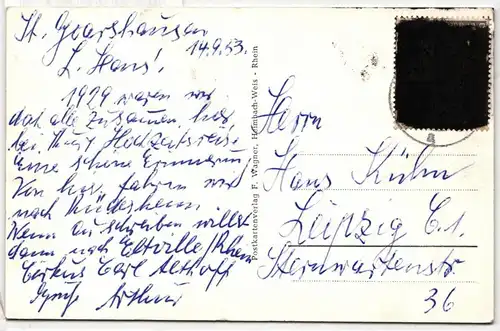 St. Goarshausen
14.9.53.
L. Hans!
1929 waren wir
doch alle zusammen hier
bei Hochzeitsreise.
Eine schöne Erinnerung
Von hier fahren wir
nach Rüdesheim.
Wenn Du schreiben willst
dann nach Eltville/Rhein
Cirkus Carl Althoff
Gruß Arthur
Postkartenverlag F. Wagner, Heimbach-Weis - Rhein
Herrn
Hans Kühn
Leipzig C.1.
Sternwartenstr
36